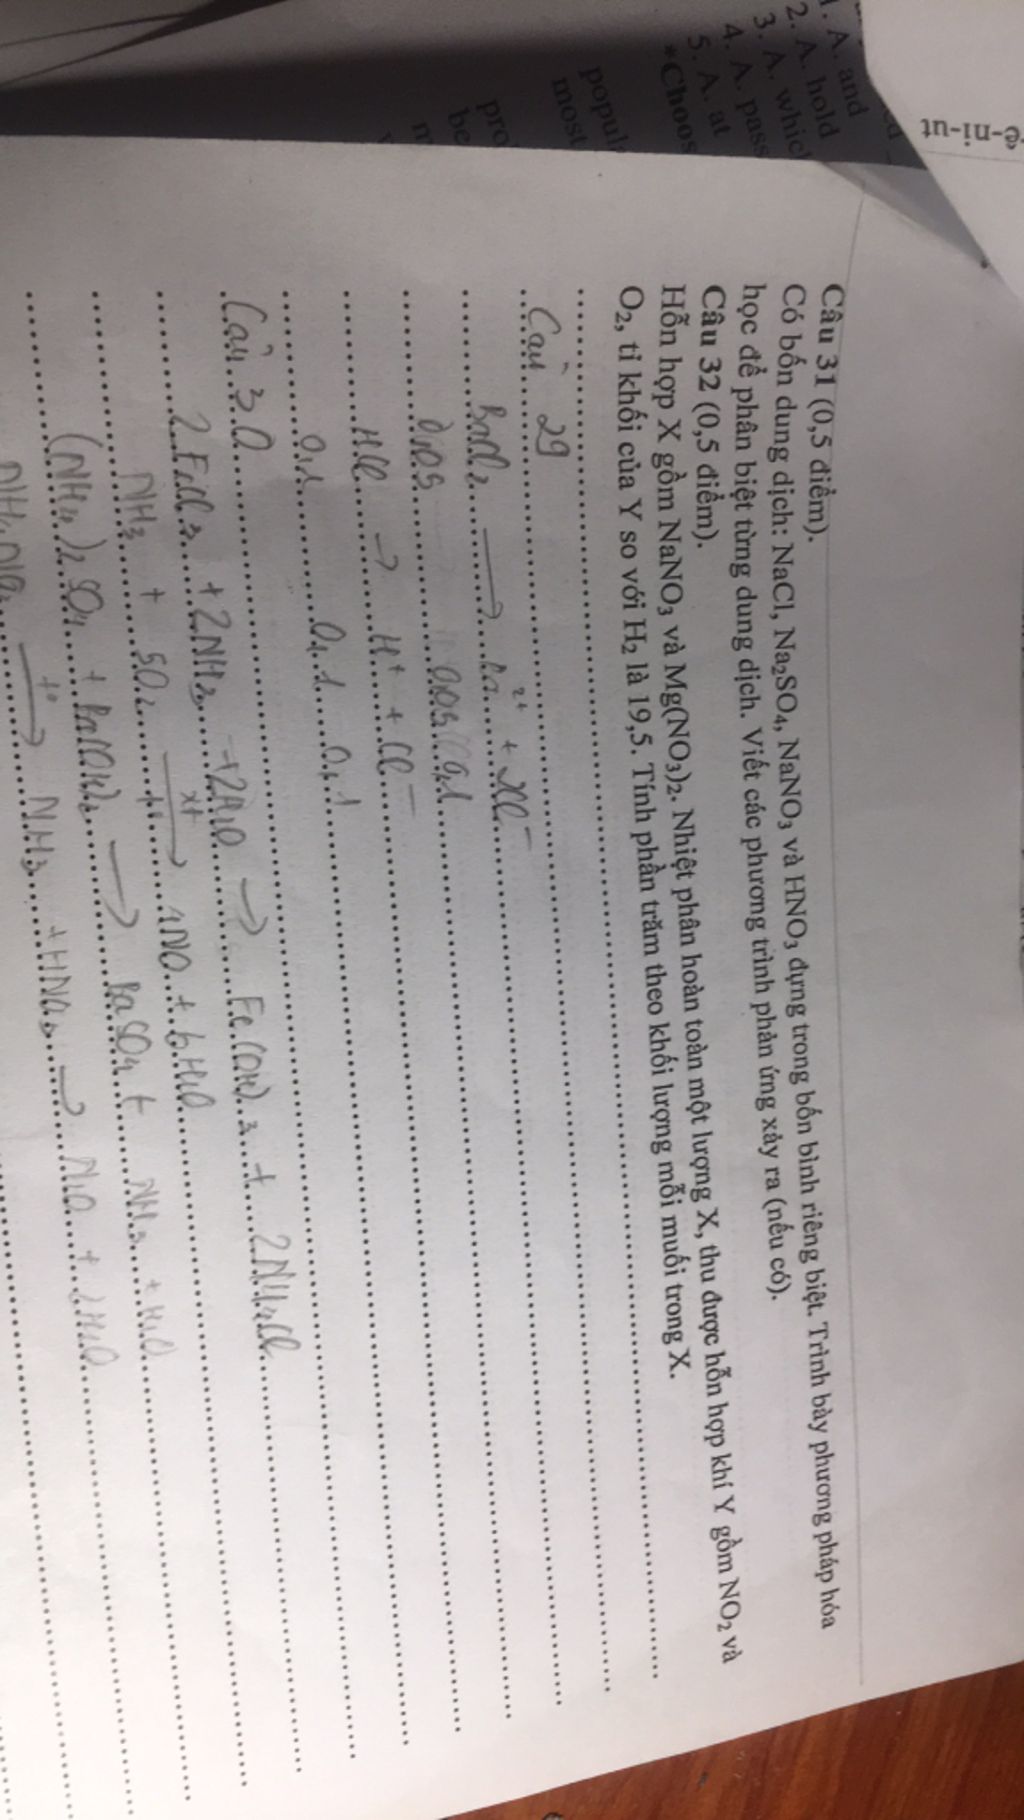 e-ni-ut
1. A. and
2. A. hold
3. A. which
4. A. pass
5. A. at
*Choos
popul
most
pro
be
Câu 31 (0,5 điểm).
Có bốn dung dịch: NaCl, Na₂SO₄, NaNO₃ và HNO₃ đựng trong bốn bình riêng biệt. Trình bày phương pháp hóa
học để phân biệt từng dung dịch. Viết các phương trình phản ứng xảy ra (nếu có).
Câu 32 (0,5 điểm).
Hỗn hợp X gồm NaNO₃ và Mg(NO₃)₂. Nhiệt phân hoàn toàn một lượng X, thu được hỗn hợp khí Y gồm NO₂ và
O₂, tỉ khối của Y so với H₂ là 19,5. Tính phần trăm theo khối lượng mỗi muối trong X.
Câu 29
BaCl₂ → Ba²⁺ + 2Cl⁻
0,05 0,05 0,1
HCl → H⁺ + Cl⁻
0,1 0,1 0,1
Câu 30
2FeCl₃ + 2NH₃ + 2H₂O → Fe(OH)₃ + 2NH₄Cl
NH₃ + 5O₂ → 4NO + 6H₂O
(NH₄)₂SO₄ + Ba(OH)₂ → BaSO₄ + NH₃ + H₂O
NH₄NO₃ → NH₃ + HNO₃ → N₂O + 2H₂O